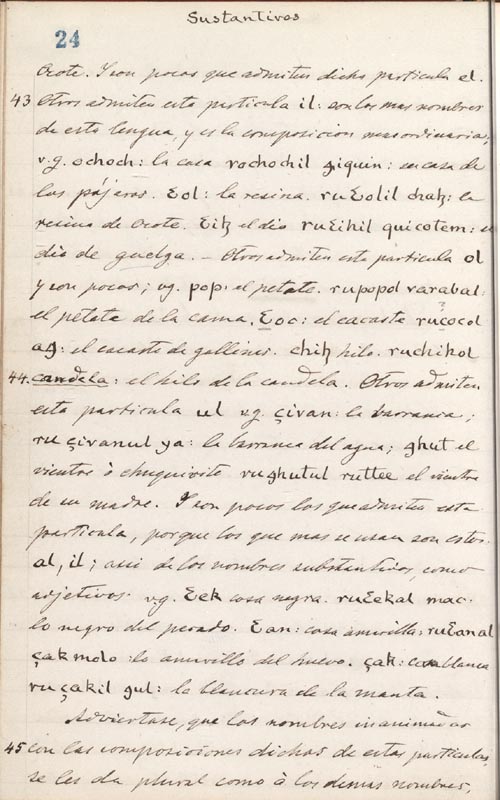 Sustantivos
24
Ocote. Y son pocos que admiten dicha particula el.
43 Otros admiten esta particula il: son los mas nombres
de esta lengua, y es la composicion mas ordinaria;
v.g. ochoch: la casa rochochil ꜩiquin: su casa de
los pájaros. Ɛol: la resina. ruƐolil chaꜫ: la
resina de Ocote. Ɛiꜫ el dia ruƐihil quicotem: el
dia de guelga. — Otros admiten esta particula ol
y son pocos; vg. pop: el petate. rupopol varabal:
el petate de la cama. Ɛoc: el cacaste ruçocol
aꜩ: el cacaste de gallinas. chiꜫ hilo. ruchihol
44. candela: el hilo de la candela. Otros admiten
esta particula ul vg. çivan: la barranca;
ru çivanul ya: la barranca del agua; ghut el
vientre ò chuquivite rughutul ruttee el vientre
de su madre. Y son pocos los que admiten esta
particula, porque los que mas se usan son estos.
al, il; asi de los nombres substantivos, como
adjetivos. v.g. Ɛek cosa negra. ruƐekal mac.
lo negro del pecado. Ɛan: cosa amarilla: ruƐanal
çakmolo: lo amarillo del huevo. çak: cosa blanca
ru çakil gul: la blancura de la manta.
Adviertase, que los nombres inanimados
45 con las composiciones dichas de estas particulas,
se les da plural como à los demas nombres,